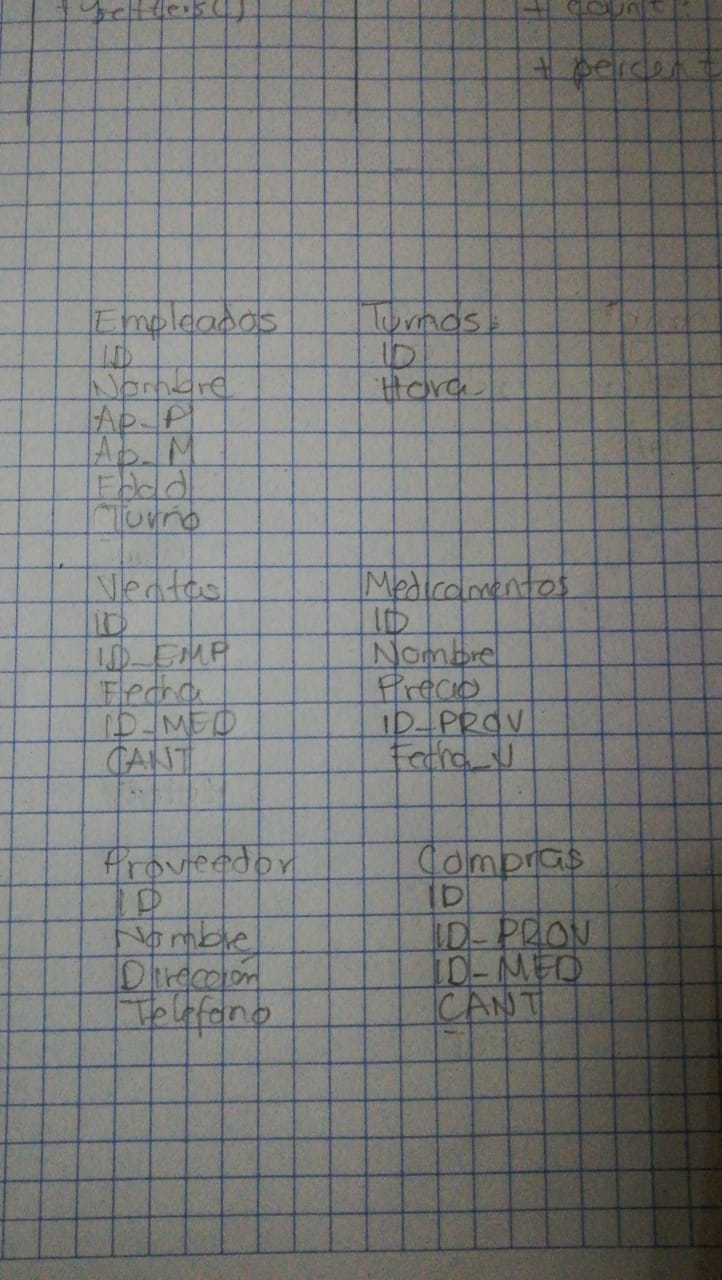 + count
+ percent
Empleados
ID
Nombre
Ap_P
Ap_M
Edad
Turno
Turnos:
ID
Hora
Ventas
ID
ID_EMP
Fecha
ID_MED
CANT
Medicamentos
ID
Nombre
Precio
ID_PROV
Fecha_V
Proveedor
ID
Nombre
Dirección
Telefono
Compras
ID
ID_PROV
ID_MED
CANT